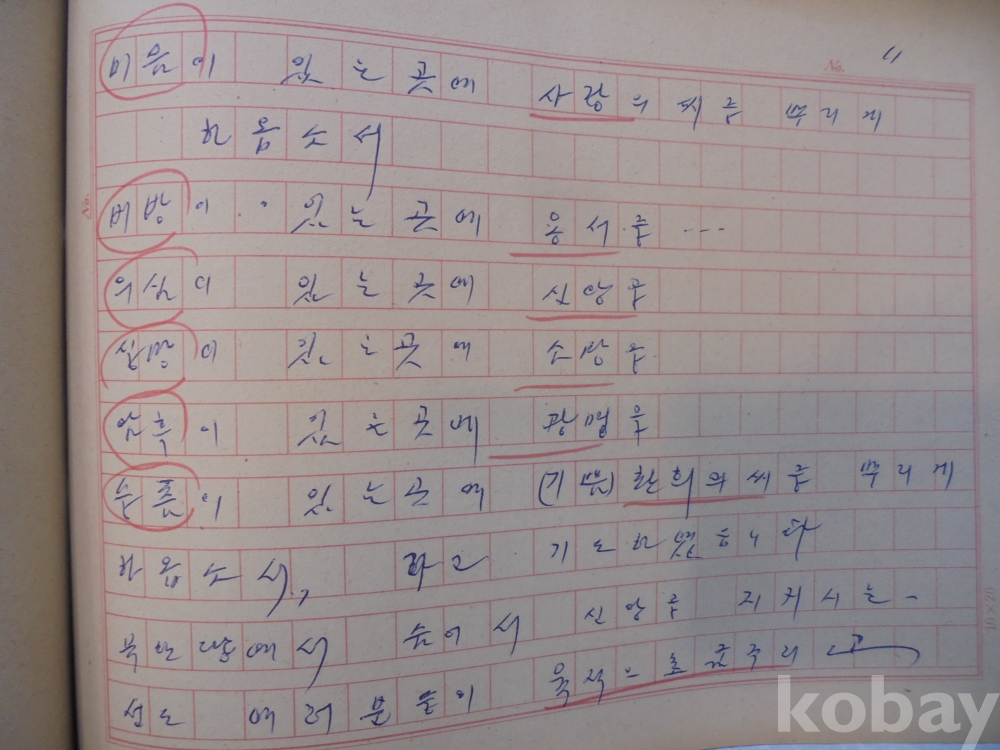 No. 11
미움이 있는 곳에 사랑의 씨를 뿌리게
하옵소서
비방이 있는 곳에 용서를 ...
의심이 있는 곳에 신앙을
실망이 있는 곳에 소망을
암흑이 있는 곳에 광명을
슬픔이 있는 곳에 (기쁨) 환희의 씨를 뿌리게
하옵소서, 하고 기도하였읍니다
북한땅에서 숨어서 신앙을 지키시는
성도 여러분들이 육적으로 굶주리고
No.
10×20
kobay